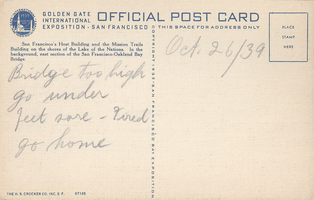 GOLDEN GATE
INTERNATIONAL
EXPOSITION - SAN FRANCISCO
OFFICIAL POST CARD
THIS SPACE FOR ADDRESS ONLY
PLACE
STAMP
HERE
San Francisco's Host Building and the Mission Trails
Building on the shores of the Lake of the Nations. In the
background, east section of the San Francisco-Oakland Bay
Bridge.
Oct. 26/39
Bridge too high
go under
Feet sore - Tired
go home
THE H. S. CROCKER CO. INC. S. F.